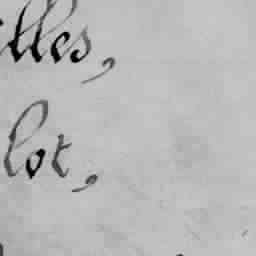 lles,
lot,